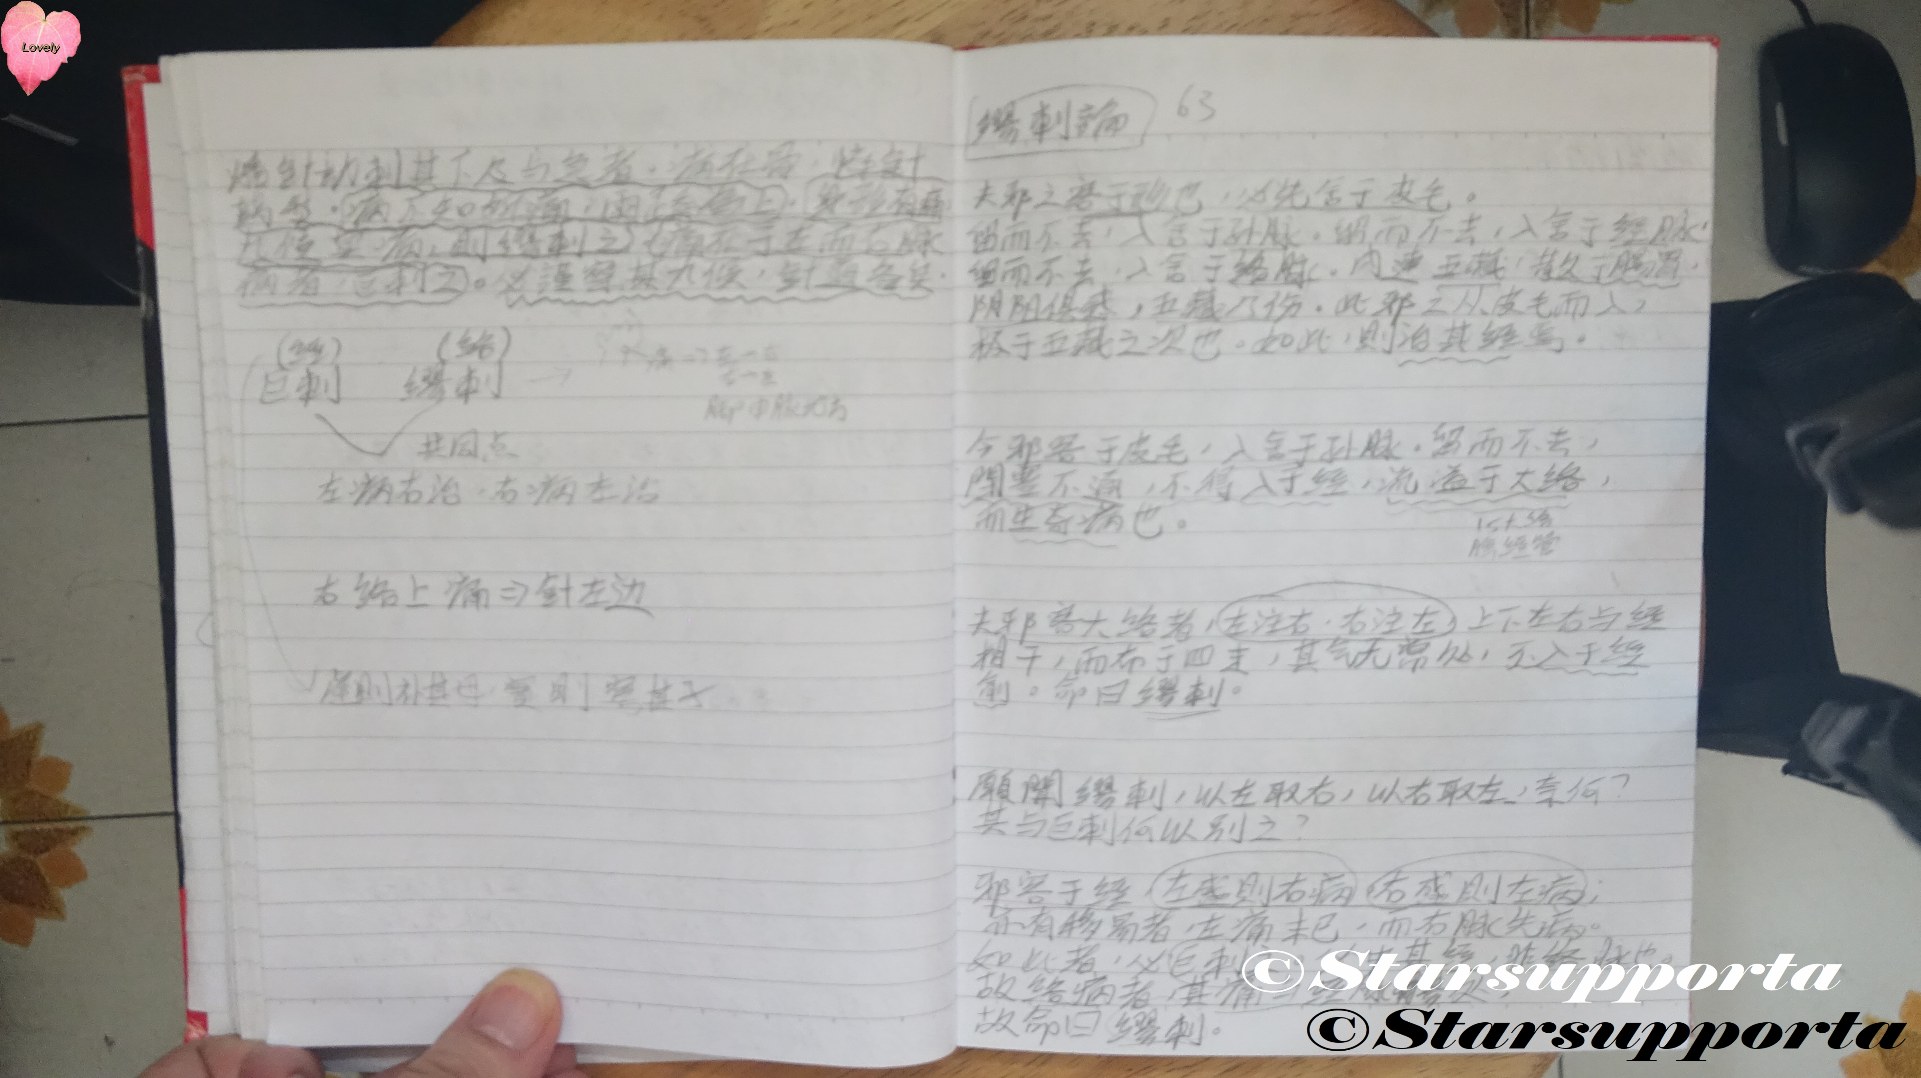 Lovely
燔針劫刺其下及与急者．病在骨．焠針
病不知所痛，
則繆刺之 痛在于左而右脉
病者，巨刺之。必謹察其九候，針道备矣．
(经) (络)
巨刺 繆刺 →
共同点
左病右治．右病左治
右络上痛⇒針左边
虚則补其母 实則
繆刺論 63
夫邪之客于形也，必先舍于皮毛。
留而不去，入舍于孙脉．留而不去，入舍于经脉，
留而不去，入舍于络脉．内連五藏，散于腸胃．
阴阳俱感，五藏乃伤．此邪之从皮毛而入，
极于五藏之次也．如此，則治其经焉。
今邪客于皮毛，入舍于孙脉．留而不去，
閉塞不通，不得入于经，流溢于大络，
而生奇病也。
15大络
夫邪客大络者，左注右．右注左，上下左右与经
相干，而布于四末，其气无常处，不入于经
俞。命曰繆刺。
願聞繆刺，以左取右，以右取左，奈何？
其与巨刺何以别之？
邪客于经，左盛則右病，右盛則左病；
亦有移易者，左痛未已，而右脉先病。
如此者，必巨刺
故络病者，其痛
故命曰繆刺。
©Starsupporta
©Starsupporta